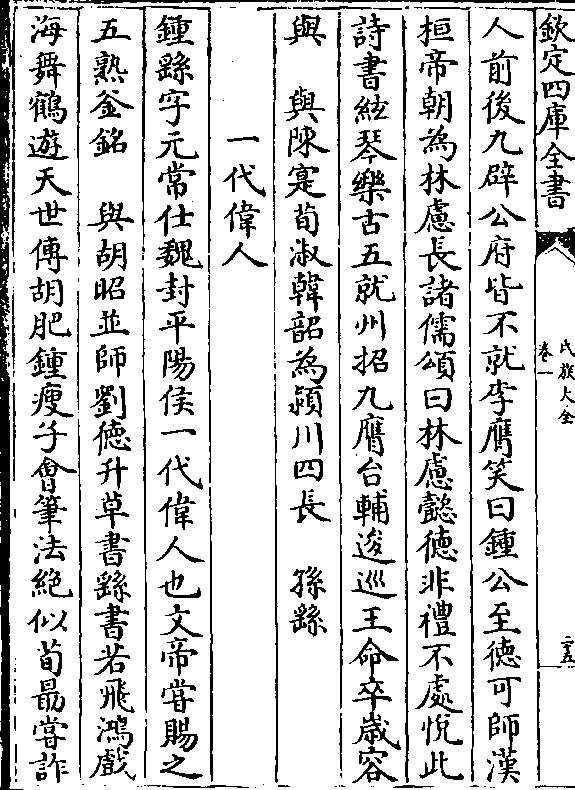 欽定四庫全書
氏族大全
卷一
二五
人前後九辟公府皆不就李膺笑曰鍾公至徳可師漢
桓帝朝為林慮長諸儒頌曰林慮懿徳非禮不處恱此
詩書絃琴樂古五就州招九膺台輔逡巡王命卒嵗容
與　與陳寔荀淑韓韶為潁川四長　孫繇
一代偉人
鍾繇字元常仕魏封平陽侯一代偉人也文帝甞賜之
五熟釜銘　與胡昭並師劉徳升草書繇書若飛鴻戲
海舞鶴遊天世傳胡肥鍾瘦子會筆法絶似荀朂甞詐